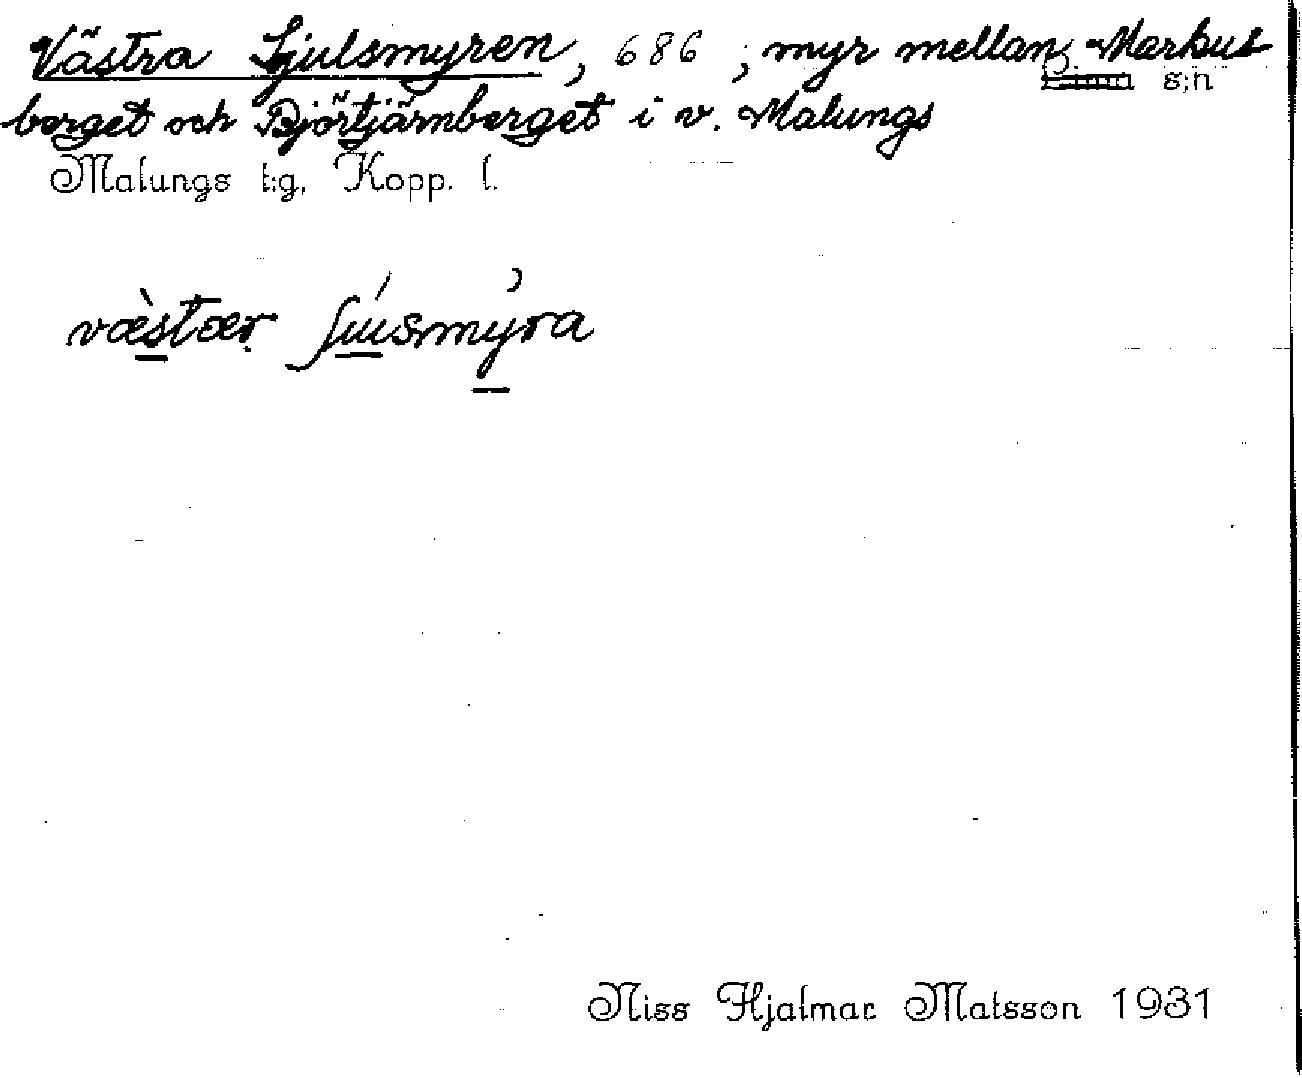 Västra Ljulsmyren, 686; myr mellan Markus
s:n
berget och Björtjärnberget i v. Malungs
Malungs t:g, Kopp. l.
væ̀stær ʃúusmỳra
Niss Hjalmar Matsson 1931